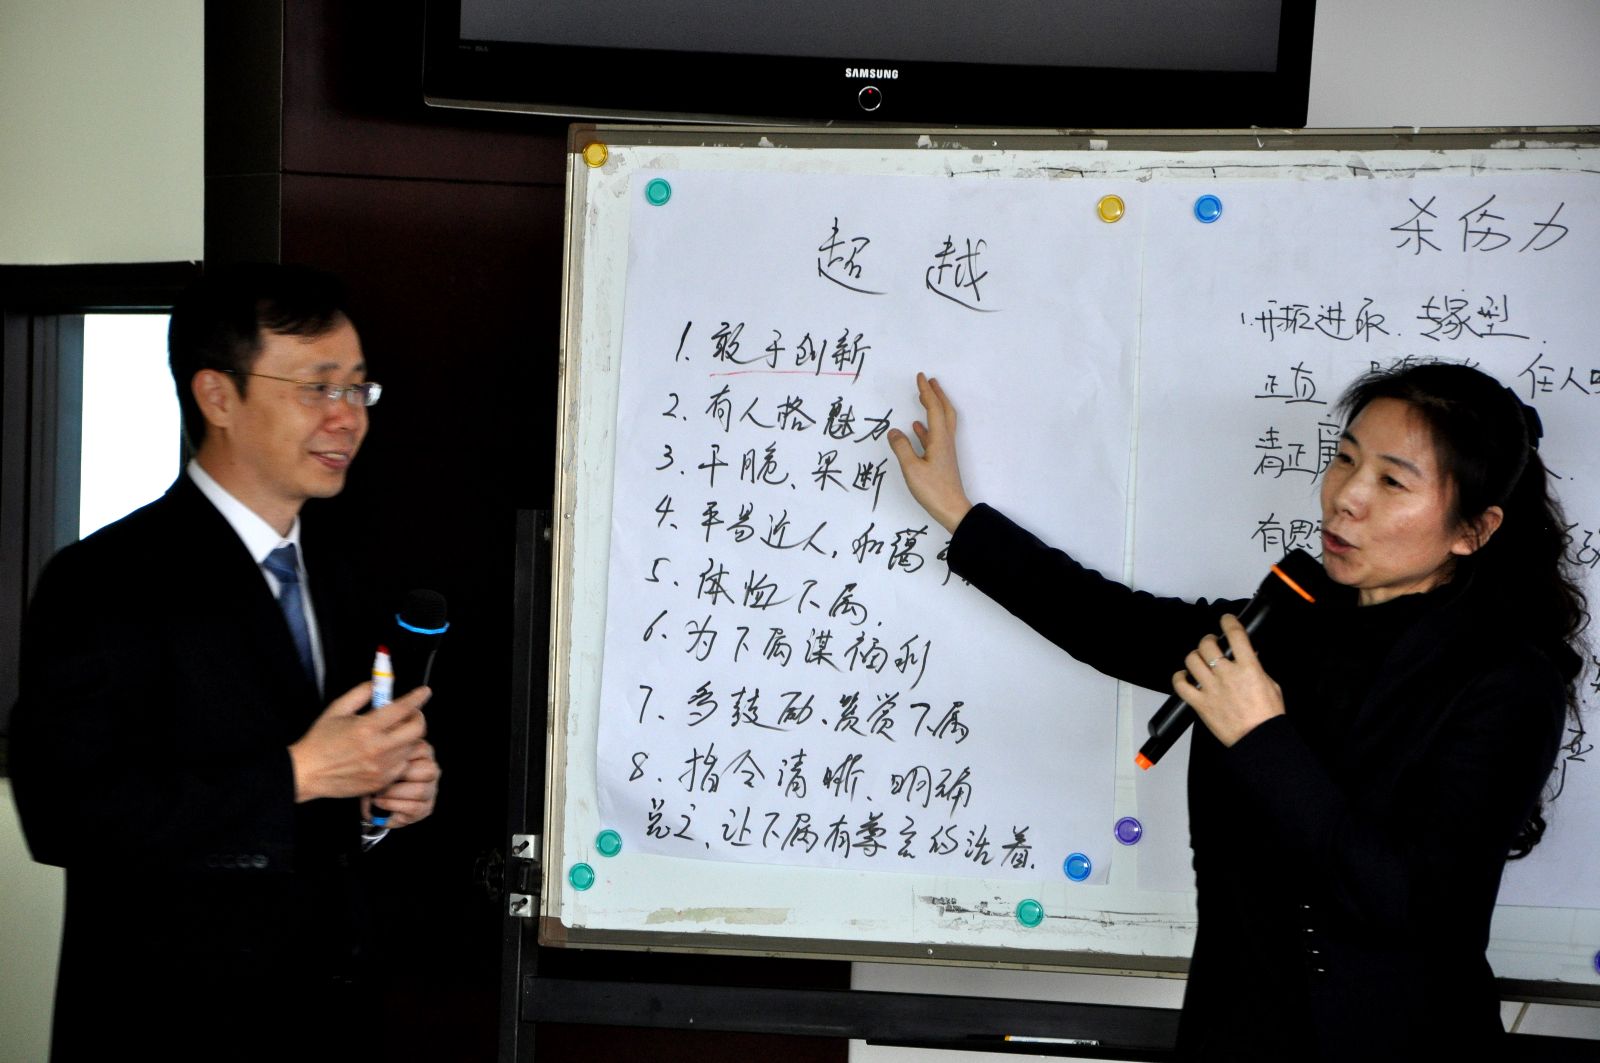 SAMSUNG
超越
1. 敢于创新
2. 有人格魅力
3. 干脆、果断
4. 平易近人,和蔼
5. 体恤下属.
6. 为下属谋福利
7. 多鼓励、赞赏下属
8. 指令清晰、明确
总之、让下属有尊严的活着.
杀伤力
1. 开拓进取、专家型.
正直 任人
清正廉
有思